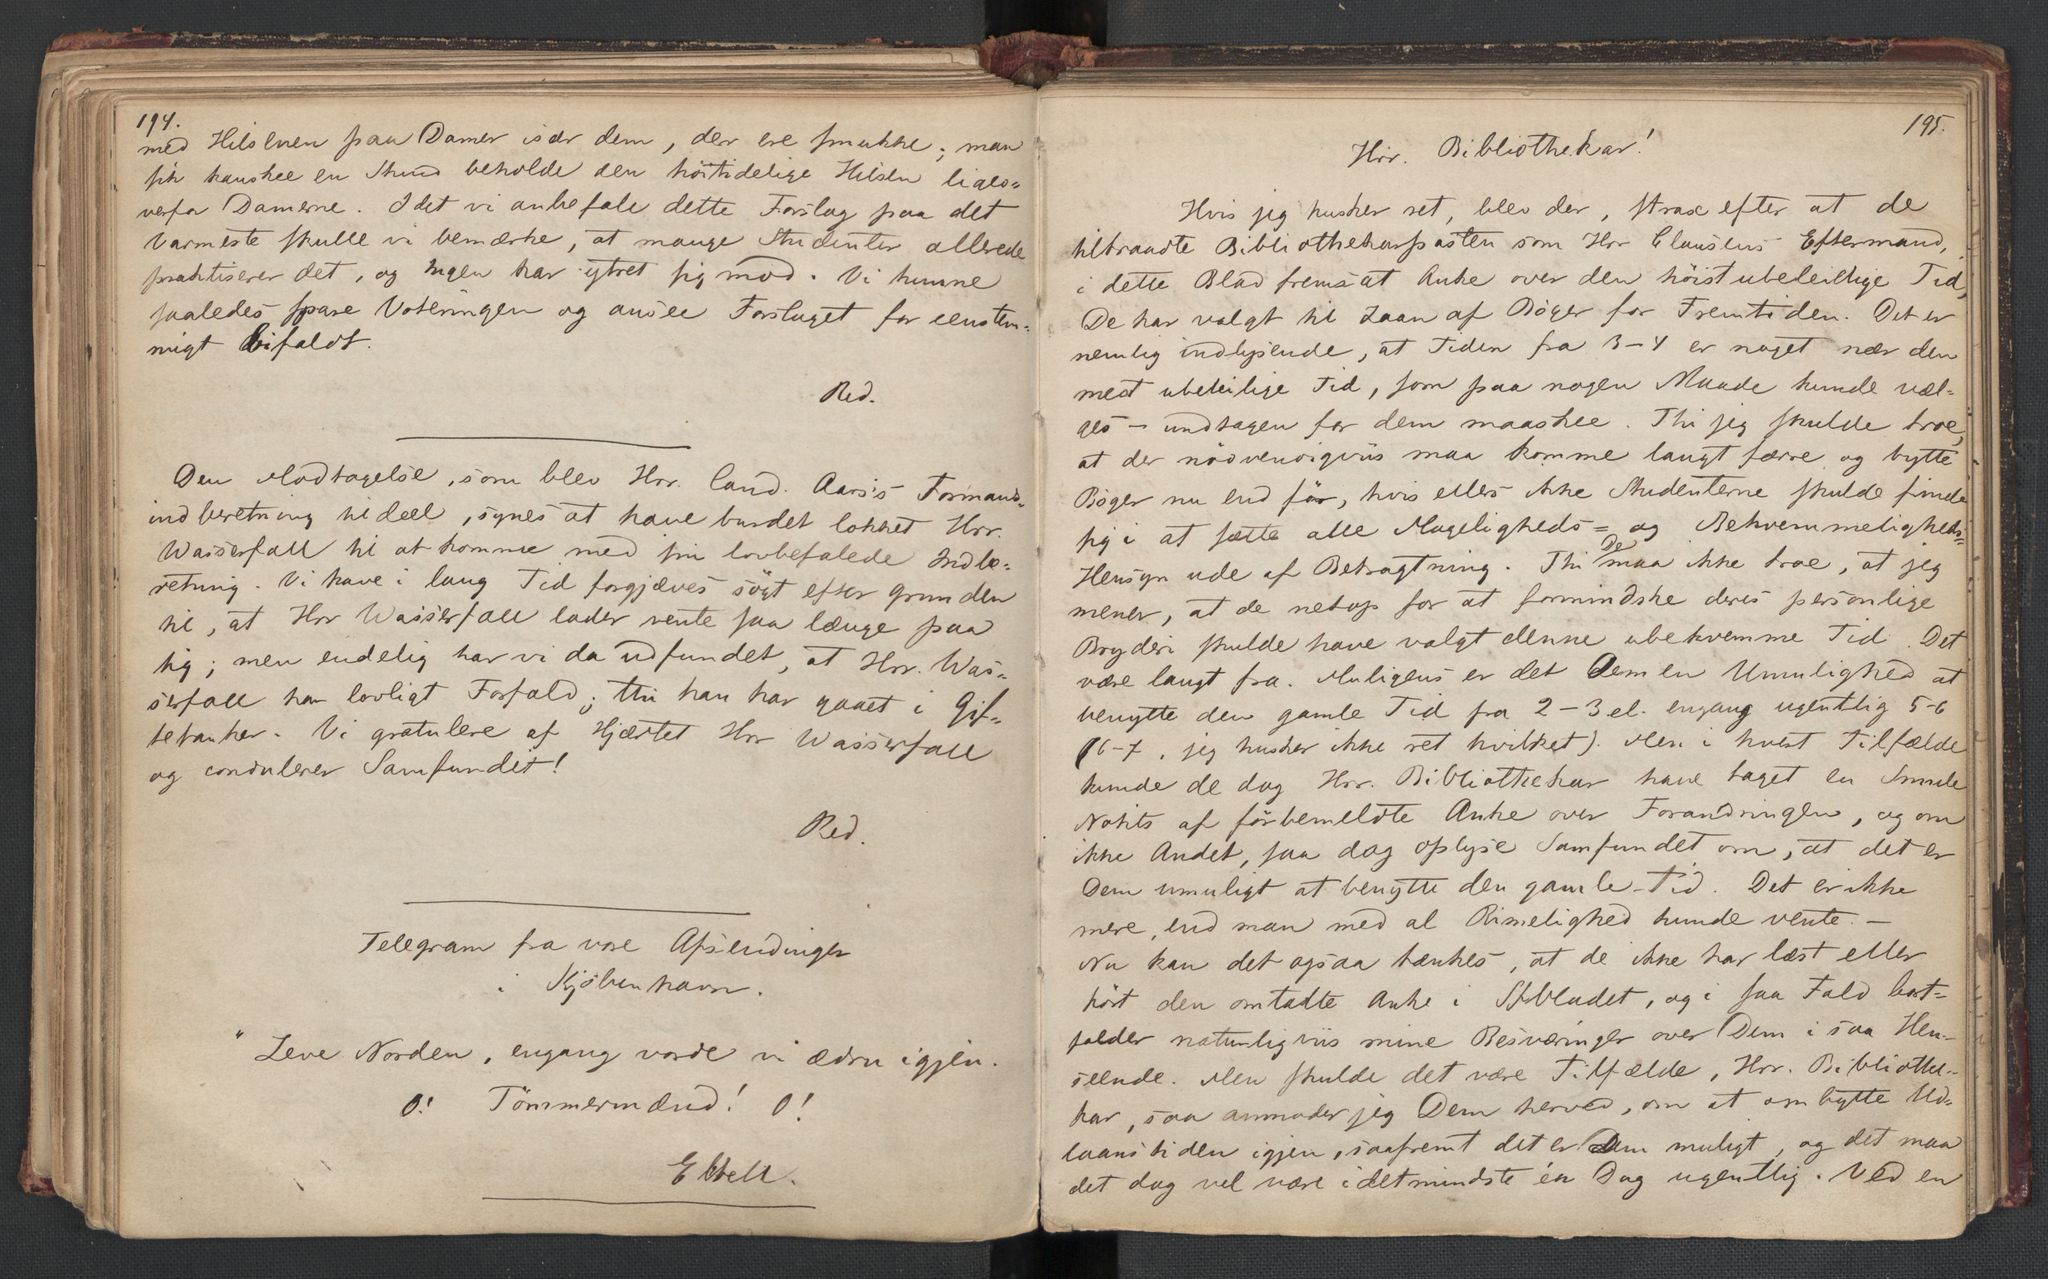 194.
med Hilsenen paa Damer især dem, der ere smukke; man
fik kanskee en Stund beholde den höitidelige Hilsen ligeo-
verfor Damerne. Idet vi anbefale dette Forslag paa det
varmeste skulle vi bemærke, at mange Studenter allerede
praktiserer det, og Ingen har ytret sig mod. Vi kunne
saaledes spare Voteringen og ansee Forslaget for eenstem-
migt bifaldt.
Red.
Den Modtagelse, som blev Hrr. Cand. Aars's Formands-
indberetning tildeel, synes at have burdet lokket Hrr.
Wasserfall til at komme med sin lovbefalede Indbe-
retning. Vi have i lang Tid forgjæves sögt efter Grunden
til, at Hrr Wasserfall lader vente saa længe paa
sig; men endelig har vi da udfundet, at Hrr. Was-
serfall har lovligt Forfald; thi han har gaaet i Gif-
tetanker. Vi gratulere af Hjærtet Hrr Wasserfall
og condulerer Samfundet!
Red.
Telegram fra vore Afsendinger
i Kjöbenhavn.
"Leve Norden, engang vorde vi ædru igjen.
O! Tömmermænd! O!
Ebbell.
195.
Hrr. Bibliothekar!
Hvis jeg husker ret, blev der, strax efter at de
tiltraadte Bibliothekarposten som Hrr Clausens Eftermand,
i dette Blad fremsat Anke over den höist ubeleillige Tid,
De har valgt til Laan af Böger for Fremtiden. Det er
nemlig indlysende, at Tiden fra 3-4 er noget nær den
mest ubeleilige Tid, som paa nogen Maade kunde væl-
ges - undtagen for dem maaskee. Thi jeg skulde troe,
at der nödvendigviis maa komme langt færre og bytte
Böger nu end för, hvis ellers ikke Studenterne skulde finde
sig i at sætte alle Mageligheds= og Bekvemmeligheds=
Hensyn ude af Betragtning. Thi De maa ikke troe, at jeg
mener, at de netop for at formindske deres personlige
Bryderi skulde have valgt denne ubekvemme Tid. Det
være langt fra. Muligens er det Dem en Umulighed at
benytte den gamle Tid fra 2-3 el. engang ugentlig 5-6
(6-7, jeg husker ikke ret hvilket). Men i hvert Tilfælde
kunde de dog Hrr. Bibliothekar have taget en Smule
Notits af förbemeldte Anke over Forandringen, og om
ikke Andet, saa dog oplyse Samfundet om, at det er
Dem umuligt at benytte den gamle Tid. Det er ikke
mere, end man med al Rimelighed kunde vente. -
Nu kan det ogsaa tænkes, at de ikke har læst eller
hört den omtalte Anke i Stbladet, og i saa Fald bort-
falder naturligviis mine Besværinger over Dem i saa Hen-
seende. Men skulde det være Tilfælde, Hrr. Bibliothe-
kar, saa anmoder jeg Dem herved, om at ombytte Ud-
laanstiden igjen, saafremt det er Dem muligt, og det maa
det dog vel være i det mindste én Dag ugentlig. Ved en